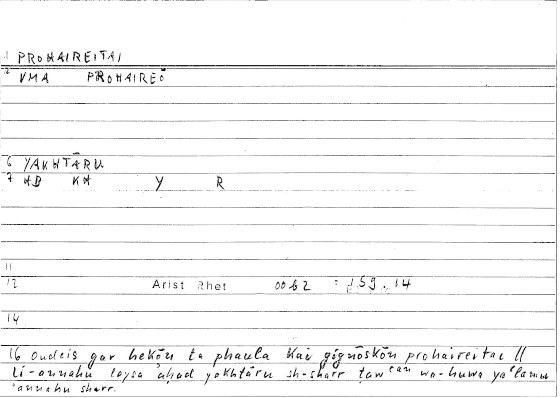 1 PROHAIREITAI
2 VMA PROHAIREŌ
6 YAKHTĀRU
7 AB KA Y R
11
12 Arist Rhet 0062 : 159 . 14
14
16 Oudeis gar hekōn ta phaula kai gignōskōn prohaireitai //
li-annahu laysa 'aḥad yakhtāru sh-sharr ṭawʿan wa-huwa yaʿlamu
'annahu sharr.